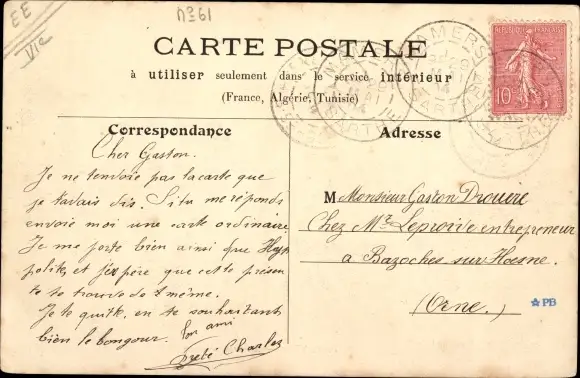 EE
VIc
No 61
CARTE POSTALE
à utiliser seulement dans le service intérieur
(France, Algérie, Tunisie)
REPUBLIQUE FRANÇAISE
10
MAMERS
SARTHE
Correspondance
Cher Gaston.
Je ne tenvoie pas la carte que
je tavais dis. Si tu me réponds
envoie moi une carte ordinaire
Je me porte bien ainsi que Hyp
polite, et j'éxpère que cette présen
te te trouve de même.
Je te quitte, en te souhaitant
bien le bongour. Ton ami
Charles
Adresse
M Monsieur Gaston Drouire
Chez Mr Leproive entrepreneur
a Bazoches sur Hoesne.
(Orne.)
PB